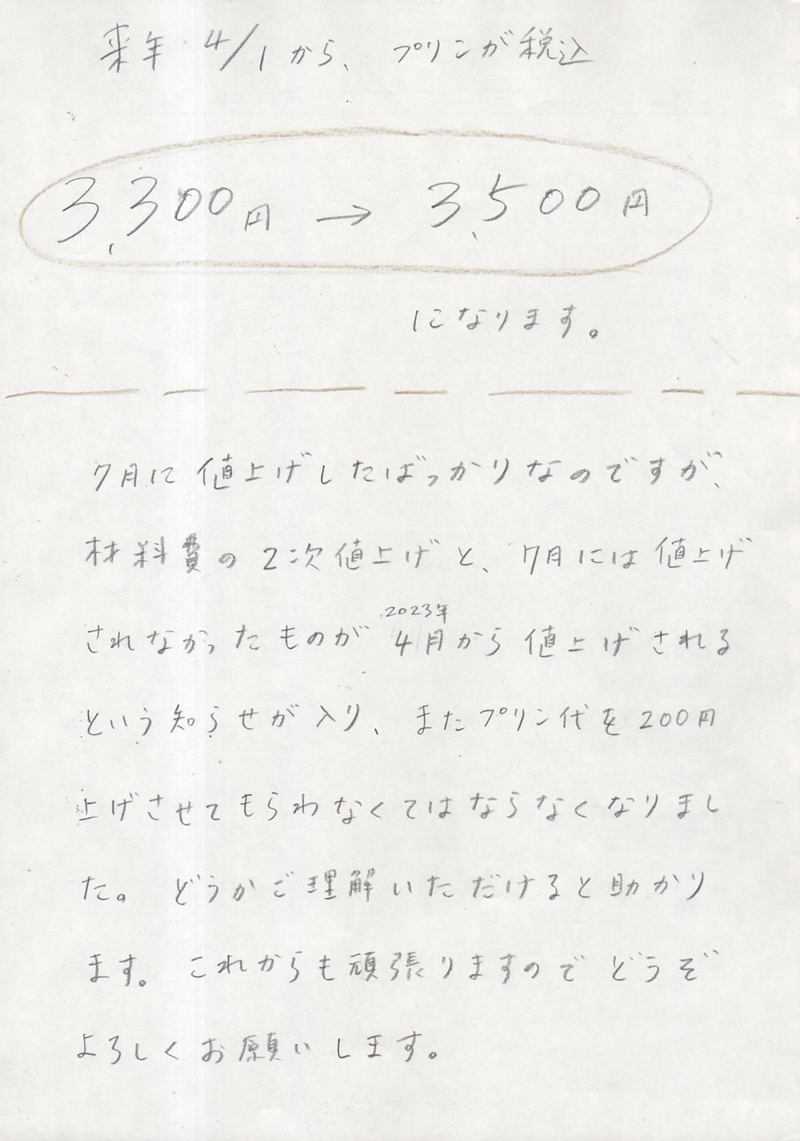 来年 4/1から、プリンが税込
3,300円 → 3,500円
になります。
7月に値上げしたばっかりなのですが、
材料費の2次値上げと、7月には値上げ
2023年
されなかったものが4月から値上げされる
という知らせが入り、またプリン代を200円
上げさせてもらわなくてはならなくなりまし
た。どうかご理解いただけると助かり
ます。これからも頑張りますのでどうぞ
よろしくお願いします。